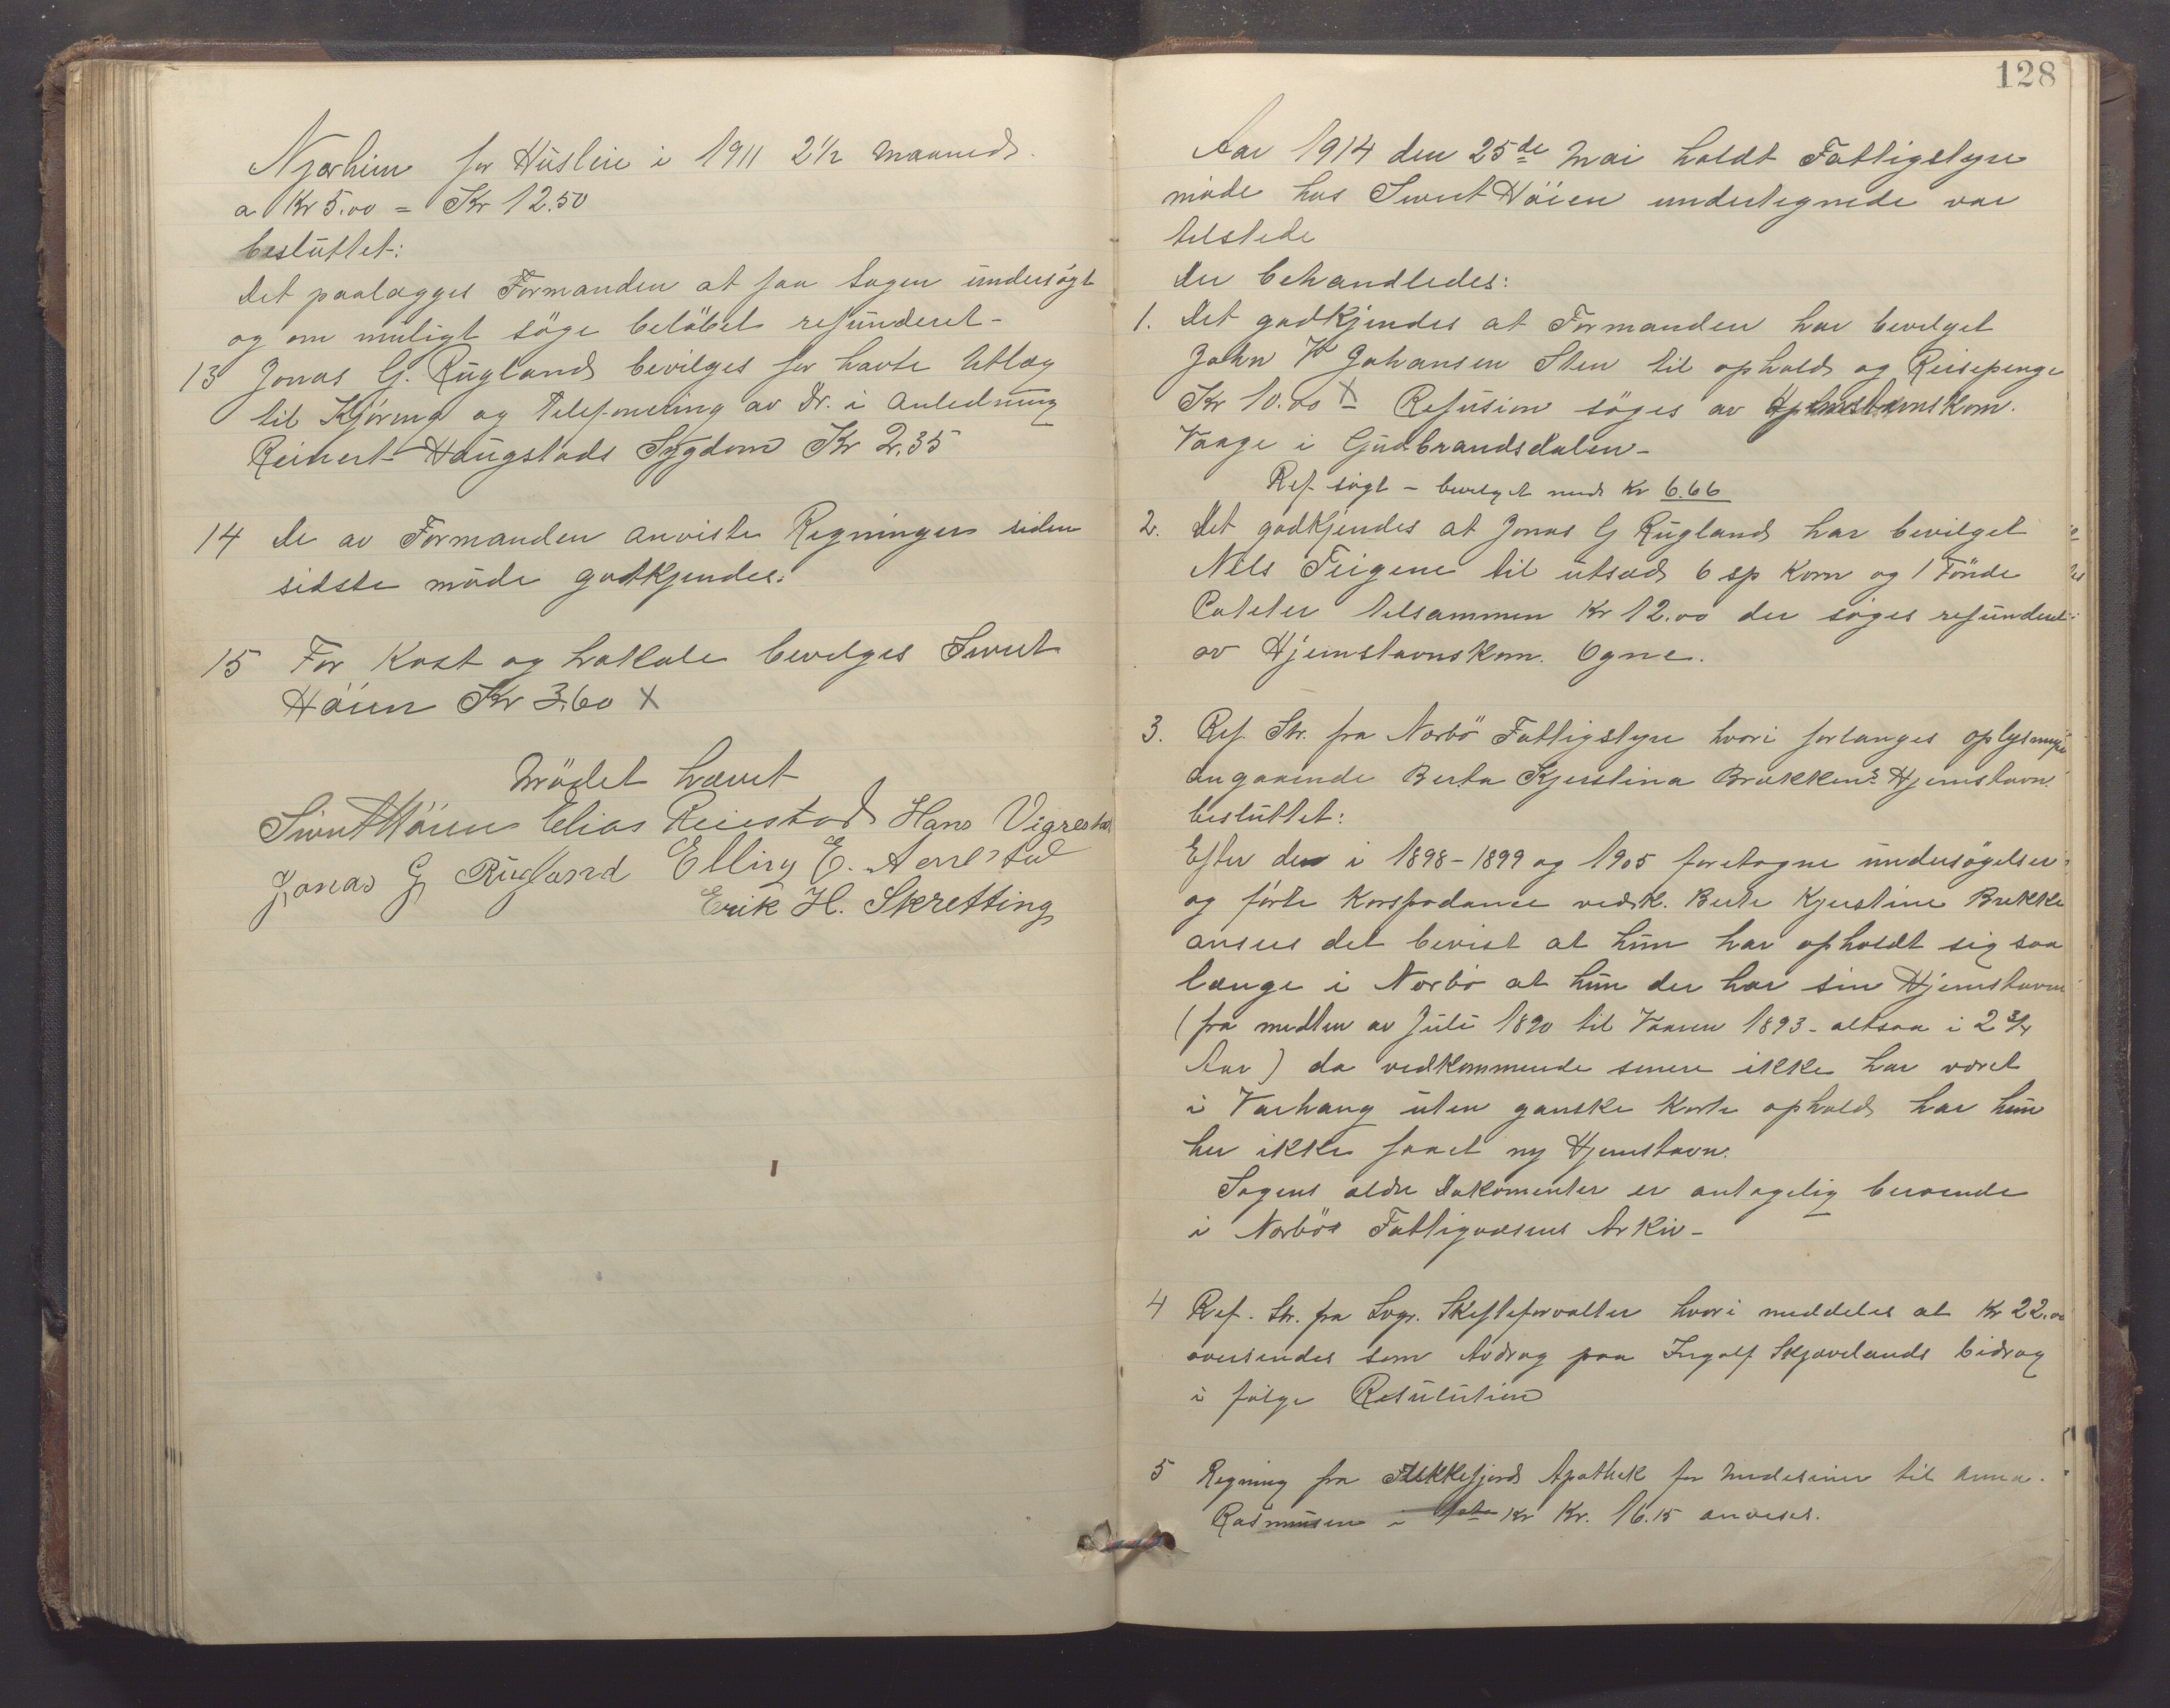 Njærheim for Husleie i 1911 2½ Maaneds
a Kr 5.00 = Kr 12.50
besluttet:
Det paalægges Formanden at faa Sagen undersøgt
og om muligt söge belöbet refunderet-
13 Jonas G. Rugland bevilges for havte Utlæg
til Kjöring og Telefonering av Dr. i Anledning
Reinert Haugstads Sygdom Kr 2,35
14 De av Formanden anviste Regninger siden
sidste möde godkjendes.
15 For Kost og Lokale bevilges Sivert
Höien Kr 3,60 X
Mödet hævet
Sivert Höien Elias Reiestad Hans Vigrestad
Jonas G Rugland Elling E. Aarrestad
Erik H. Skretting
128
Aar 1914 den 25de Mai holdt Fattigstyre
möde hos Sivert Höien undertegnede var
tilstede
Der behandledes:
1. Det godkjendes at Formanden har bevilget
John K Johansen Sten til ophold og Reisepenge
Kr 10.00 X Refusion söges av Hjemstavnskom.
Vaage i Gudbrandsdalen-
Ref. sögt - bevilget med Kr 6.66
2. Det godkjendes at Jonas G Rugland har bevilget
Nils Feigene til utsæd 6 sp Korn og 1 Tönde
Poteter tilsammen Kr 12.00 der söges refunderet
av Hjemstavnskom. Ogne.
3. Ref. Skr. fra Nærbö Fattigstyre hvori forlanges oplysninger
angaaende Berta Kjerstina Brækkens Hjemstavn.
besluttet:
Efter de i 1898-1899 og 1905 foretagne undersögelser
og förte Korspodance vedk. Berte Kjerstine Brekke
ansees det bevist at hun har opholdt sig saa
længe i Nærbö at hun der har sin Hjemstavn
(fra midten av Juli 1890 til Vaaren 1893 - altsaa i 2 ¾
Aar) da vedkommende senere ikke har været
i Varhaug uten ganske korte ophold har hun
her ikke faaet ny Hjemstavn.
Sagens ældre Dokomenter er antagelig beroende
i Nærbös Fattigvæsens Arkiv-
4 Ref. Skr. fra Sogr. Skifteforvalter hvori meddeles at Kr 22.00
oversendes som Avdrag paa Ingolf Skjævelands bidrag
i fölge Resulution
5 Regning fra Flekkefjords Apothek for Medesiner til Anna
Rasmusen i Kr Kr. 16.15 anvises.